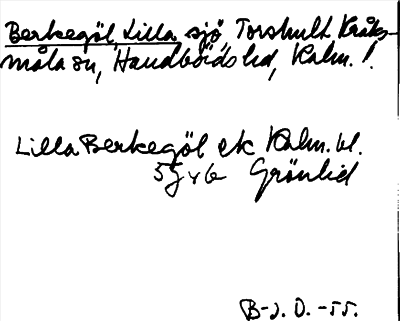 Berkegöl, Lilla, sjö, Torshult Kråks-
måla sn, Handbörds hd, Kalm. l.
Lilla Berkegöl ek Kalm. bl.
5G v b Grönlid
B-J. O. -55.